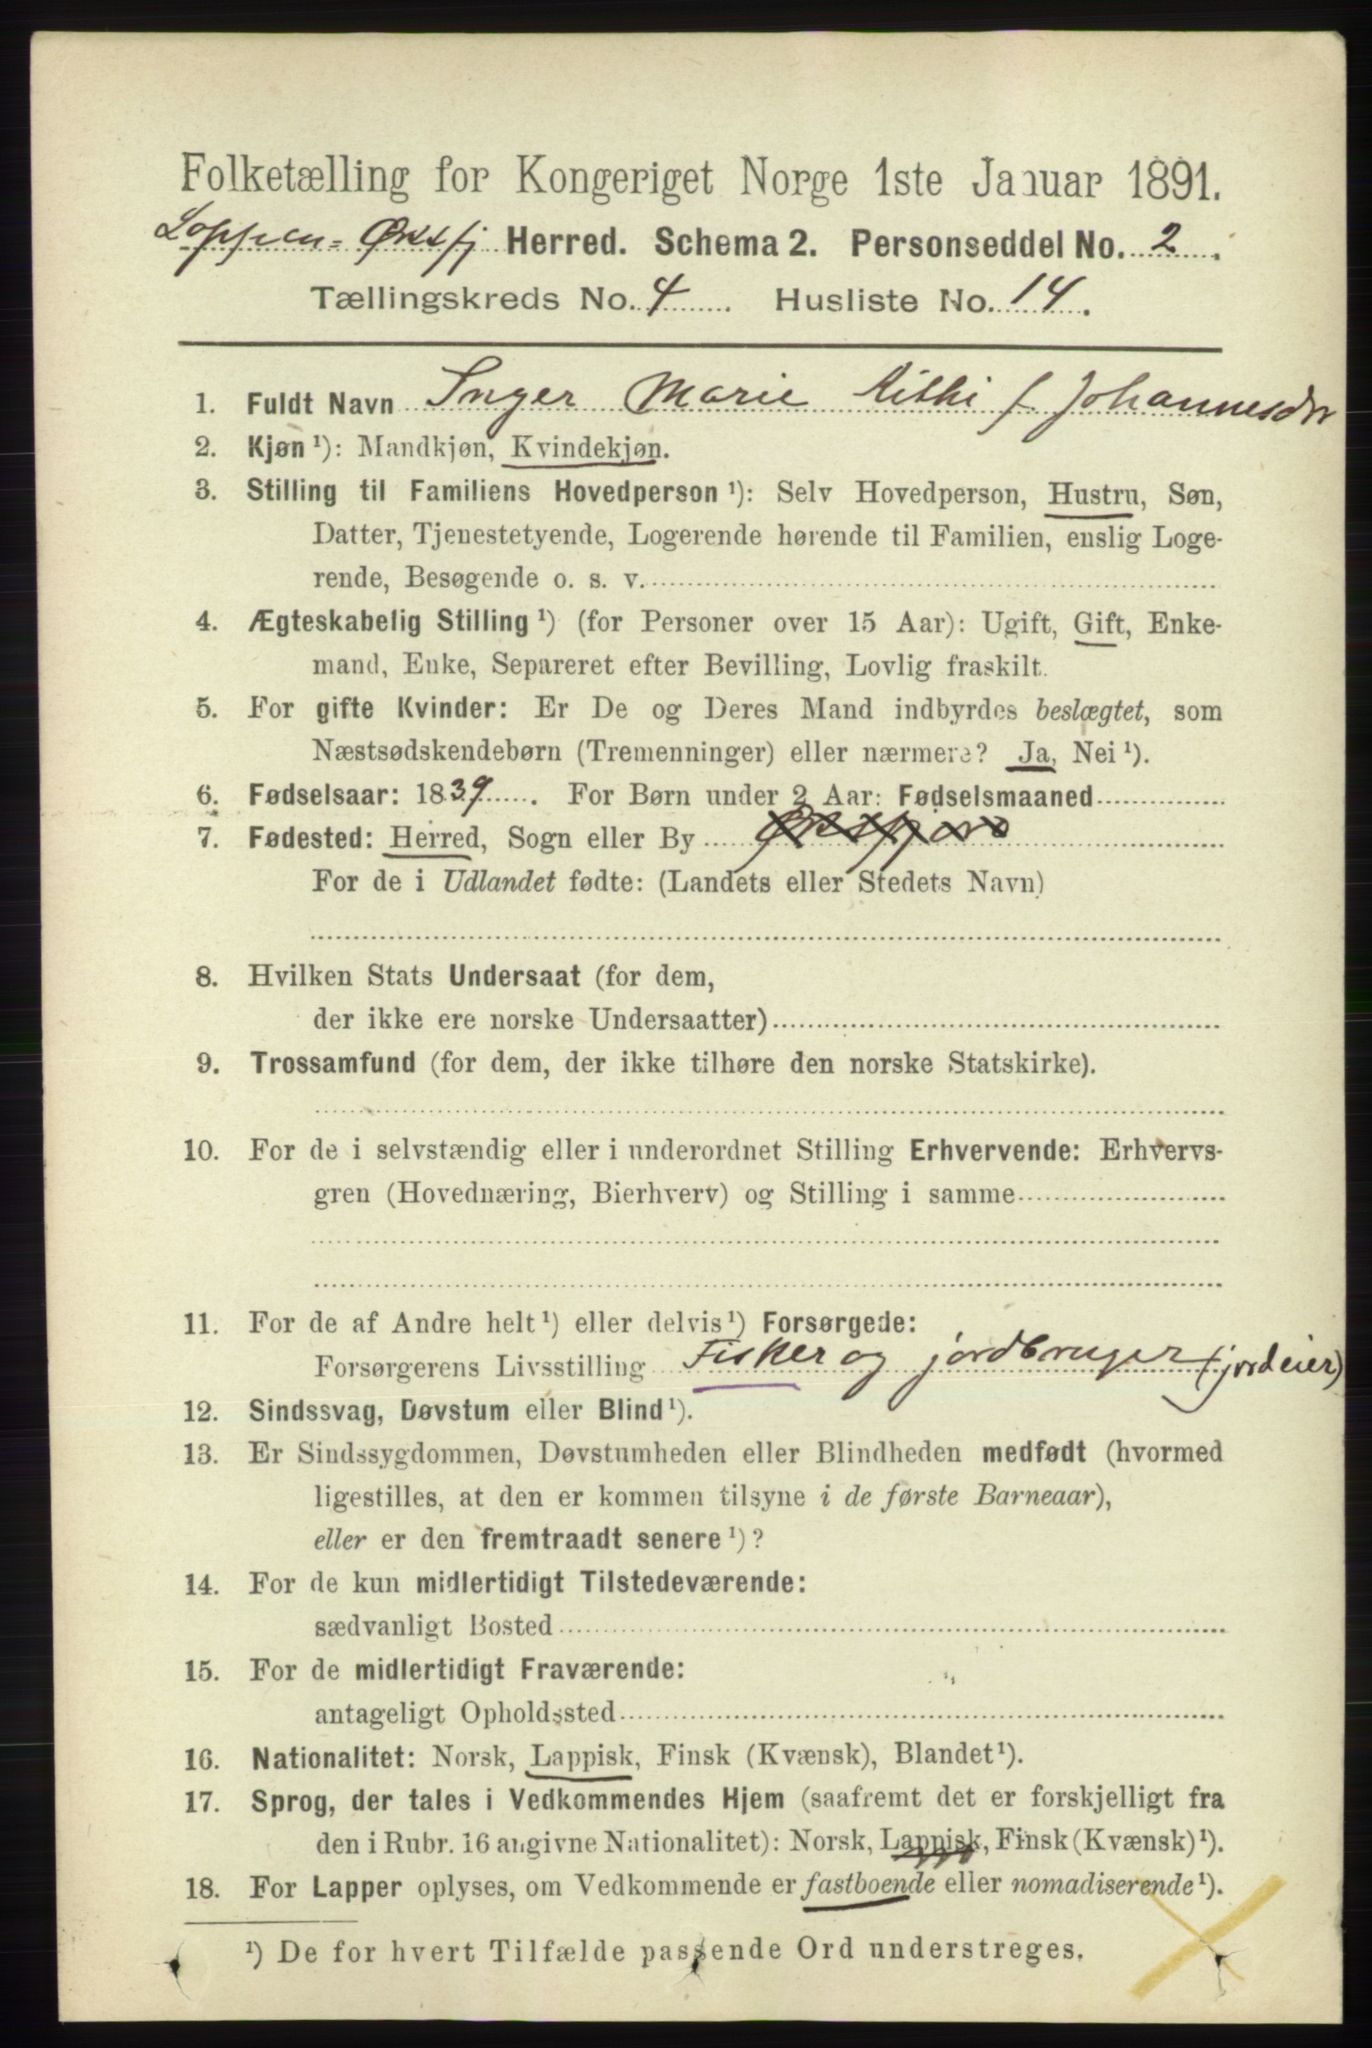 Folketælling for Kongeriget Norge 1ste Januar 1891.
Loppen-Øksfj Herred. Schema 2. Personseddel No. 2.
Tællingskreds No. 4. Husliste No. 14.
1. Fuldt Navn Inger Marie f Johannesdtr
2. Kjøn ¹): Mandkjøn, Kvindekjøn.
3. Stilling til Familiens Hovedperson ¹): Selv Hovedperson, Hustru, Søn,
Datter, Tjenestetyende, Logerende hørende til Familien, enslig Loge-
rende, Besøgende o. s. v.
4. Ægteskabelig Stilling ¹) (for Personer over 15 Aar): Ugift, Gift, Enke-
mand, Enke, Separeret efter Bevilling, Lovlig fraskilt.
5. For gifte Kvinder: Er De og Deres Mand indbyrdes beslægtet, som
Næstsødskendebørn (Tremenninger) eller nærmere? Ja, Nei ¹).
6. Fødselsaar: 1839. For Børn under 2 Aar: Fødselsmaaned
7. Fødested: Herred, Sogn eller By Øksfjord
For de i Udlandet fødte: (Landets eller Stedets Navn)
8. Hvilken Stats Undersaat (for dem,
der ikke ere norske Undersaatter)
9. Trossamfund (for dem, der ikke tilhøre den norske Statskirke).
10. For de i selvstændig eller i underordnet Stilling Erhvervende: Erhvervs-
gren (Hovednæring, Bierhverv) og Stilling i samme
11. For de af Andre helt ¹) eller delvis ¹) Forsørgede:
Forsørgerens Livsstilling Fisker og jordbruger (jordeier)
12. Sindssvag, Døvstum eller Blind ¹).
13. Er Sindssygdommen, Døvstumheden eller Blindheden medfødt (hvormed
ligestilles, at den er kommen tilsyne i de første Barneaar),
eller er den fremtraadt senere ¹)?
14. For de kun midlertidigt Tilstedeværende:
sædvanligt Bosted
15. For de midlertidigt Fraværende:
antageligt Opholdssted
16. Nationalitet: Norsk, Lappisk, Finsk (Kvænsk), Blandet ¹).
17. Sprog, der tales i Vedkommendes Hjem (saafremt det er forskjelligt fra
den i Rubr. 16 angivne Nationalitet): Norsk, Lappisk, Finsk (Kvænsk) ¹).
18. For Lapper oplyses, om Vedkommende er fastboende eller nomadiserende ¹).
¹) De for hvert Tilfælde passende Ord understreges.